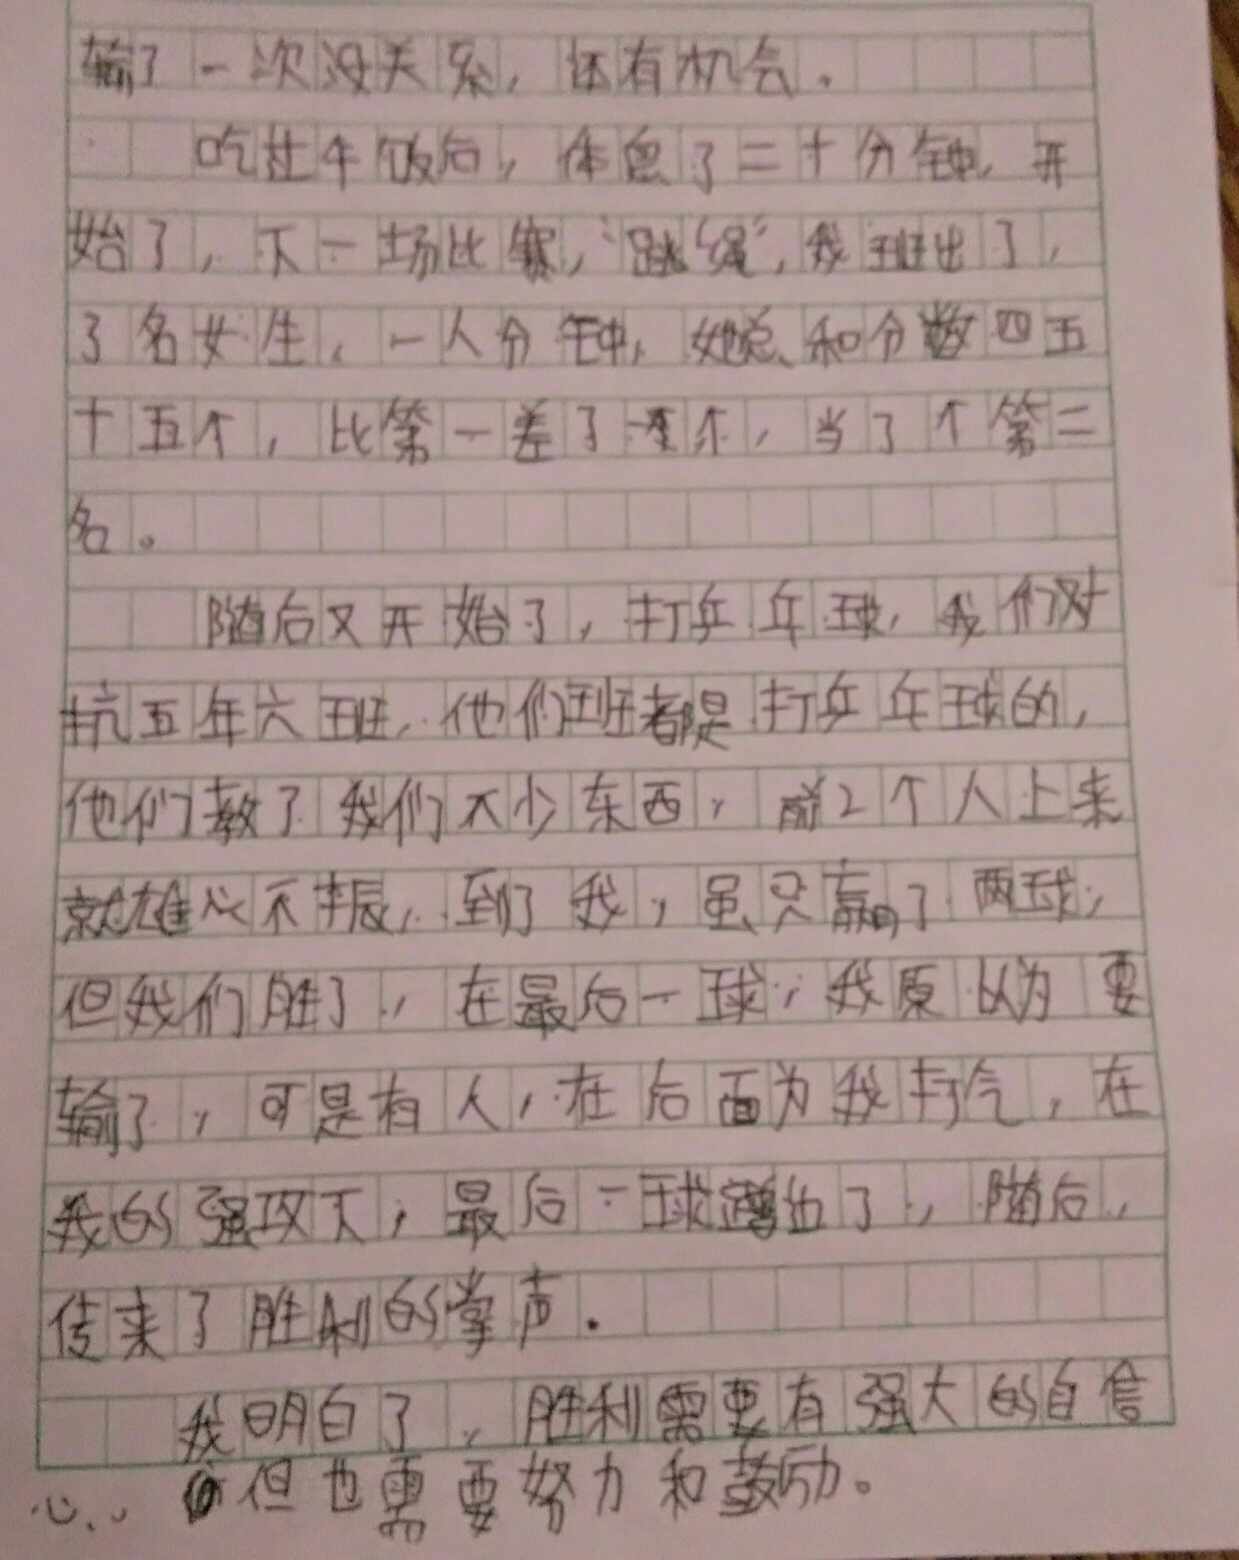 输了一次没关系，还有机会。
吃过午饭后，休息了二十分钟，开
始了，下一场比赛，“跳绳”，我班出了，
3名女生，一人分钟，她总和分数四五
十五个，比第一差了个，当了个第二
名。
随后又开始了，打乒乓球，我们对
抗五年六班，他们班都是打乒乓球的，
他们教了我们不少东西，前2个人上来
就雄心不振，到了我，虽只赢了两球，
但我们胜了，在最后一球，我原以为要
输了，可是有人，在后面为我打气，在
我的强攻下，最后一球出了，随后，
传来了胜利的掌声.
我明白了，胜利需要有强大的自信
心，但也需要努力和鼓励。